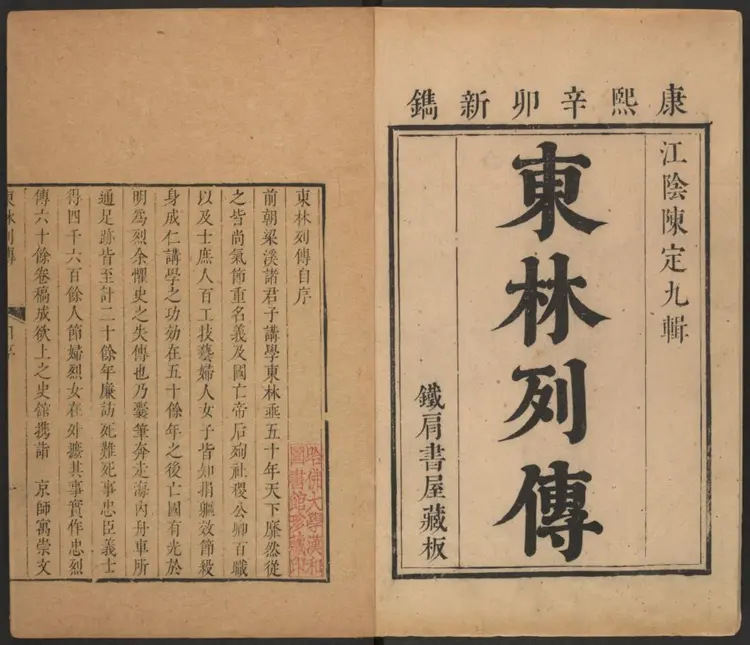 康熙辛卯新鐫
江陰陳定九輯
東林列傳
鐵肩書屋藏板
東林列傳自序
前朝梁溪諸君子講學東林垂五十年天下靡然從
之皆尚氣節重名義及國亡帝后殉社稷公卿百職
以及士庶人百工技藝婦人女子皆知捐軀效節殺
身成仁講學之功効在五十餘年之後亡國有光於
明為烈余懼史之失傳也乃橐筆奔走海內舟車所
通足跡皆至計二十餘年廉訪死難死事忠臣義士
得四千六百餘人節婦烈女在外據其事實作忠烈
傳六十餘卷稿成欲上之史館携詣　京師寓崇文
東林列傳
自序
一
哈佛大學漢和
圖書館珍藏印